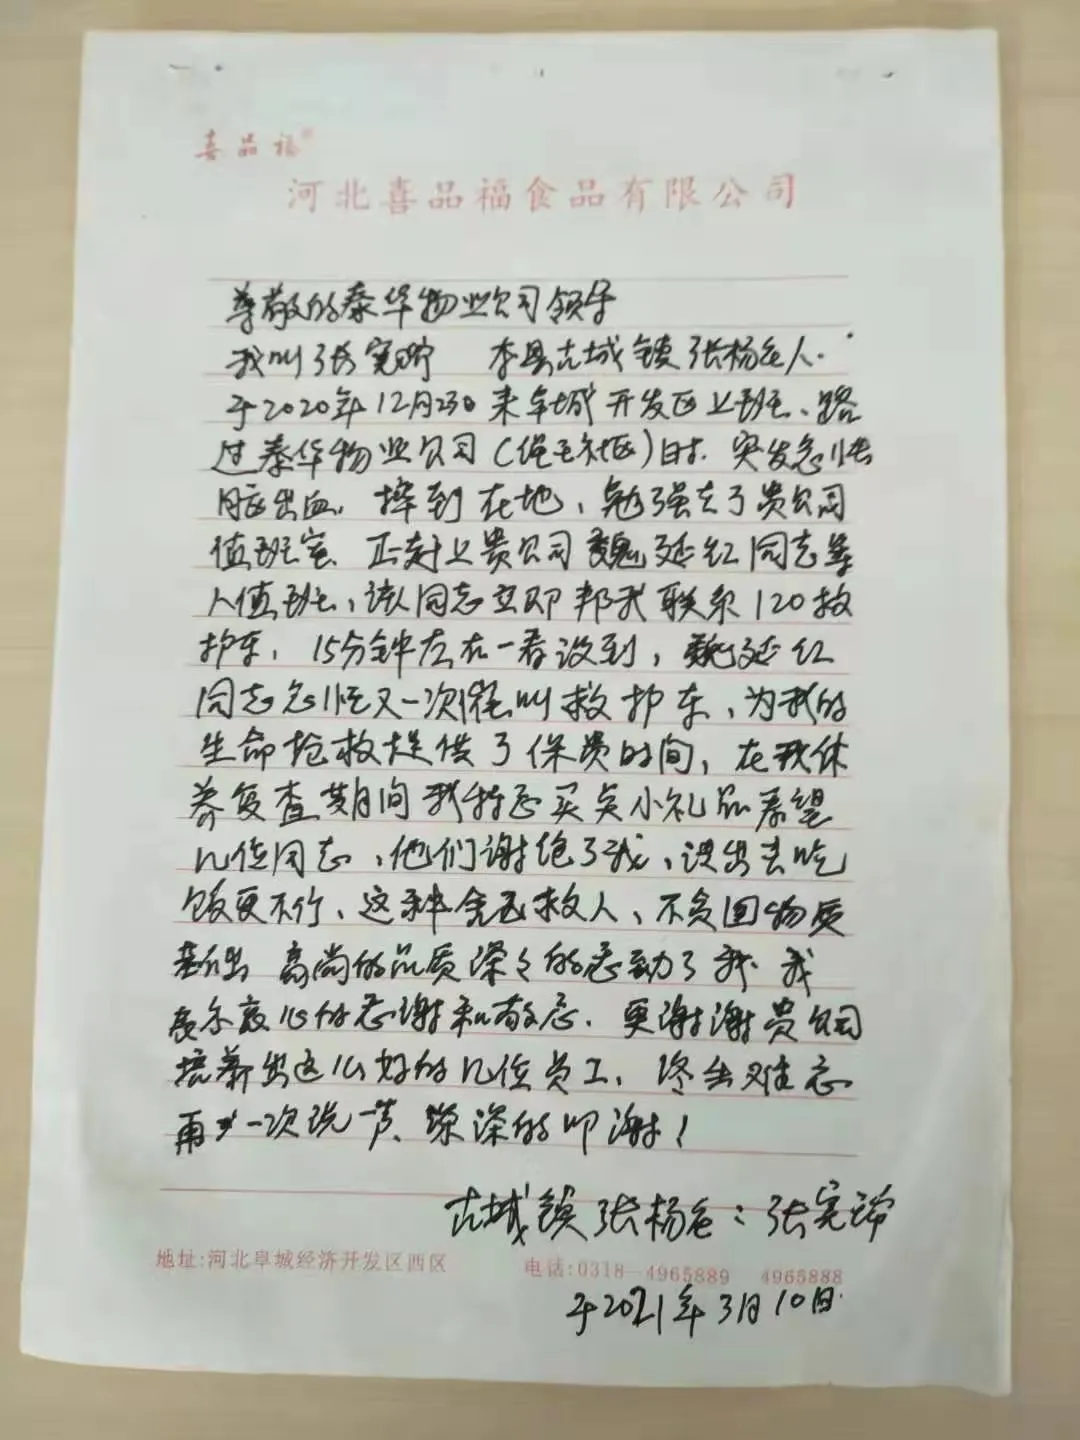 喜品福®
河北喜品福食品有限公司
尊敬的泰华物业公司领导
我叫张宪 本县古城镇张杨仓人.
于2020年12月23日来阜城开发区上班、路
过泰华物业公司(社区)时.突发急性
脑出血.摔到在地,勉强去了贵公司
值班室.正赶上贵公司魏延红同志等
人值班,该同志立即帮我联系120救
护车,15分钟左右一看没到,魏延红
同志急忙又一次催叫救护车,为我的
生命抢救提供了保贵时间,在我休
养复查期间我特意买点小礼品看望
几位同志,他们谢绝了我,请出去吃
饭更不行、这种舍己救人、不贪图物质
高尚的品质深々的感动了我.我
表示衷心的感谢和敬意.更谢谢贵公司
培养出这么好的几位员工,终生难忘
再次一次说一声、深深的叩谢!
古城镇张杨仓:张宪
地址:河北阜城经济开发区西区 电话:0318-4965889 4965888
于2021年3月10日.